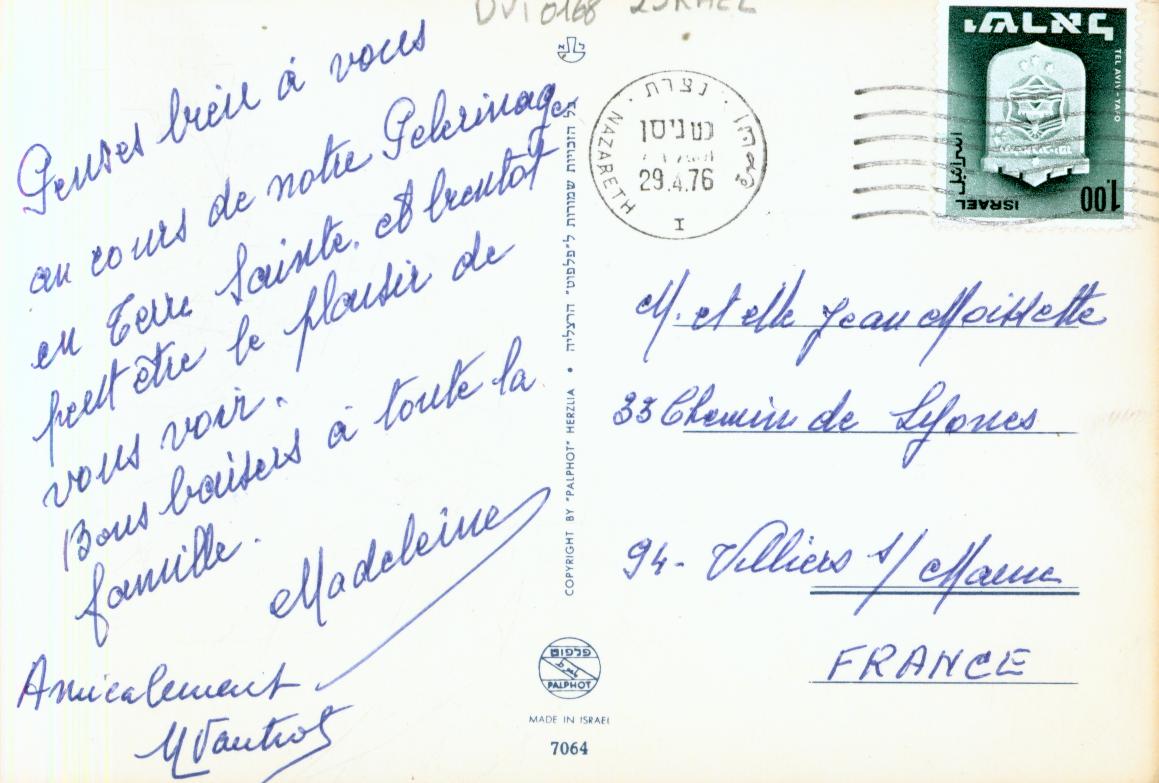 DVT 0168 ISRAEL
Pensez bien à vous
au cours de notre Pelerinage
en Terre Sainte. et bientot
peut être le plaisir de
vous voir.
Bons baisers à toute la
famille.
Madeleine
Amicalement
ישראל
TEL AVIV-YAFO
اسرائيل
ISRAEL
1.00
נצרת
כט ניסן
29.4.76
NAZARETH
I
M. et Mme Jean Moissette
33 Chemin de
94- Villiers s/ Marne
FRANCE
כל הזכויות שמורות ל״פלפוט״ הרצליה • COPYRIGHT BY "PALPHOT" HERZLIA
פלפוט
PALPHOT
MADE IN ISRAEL
7064